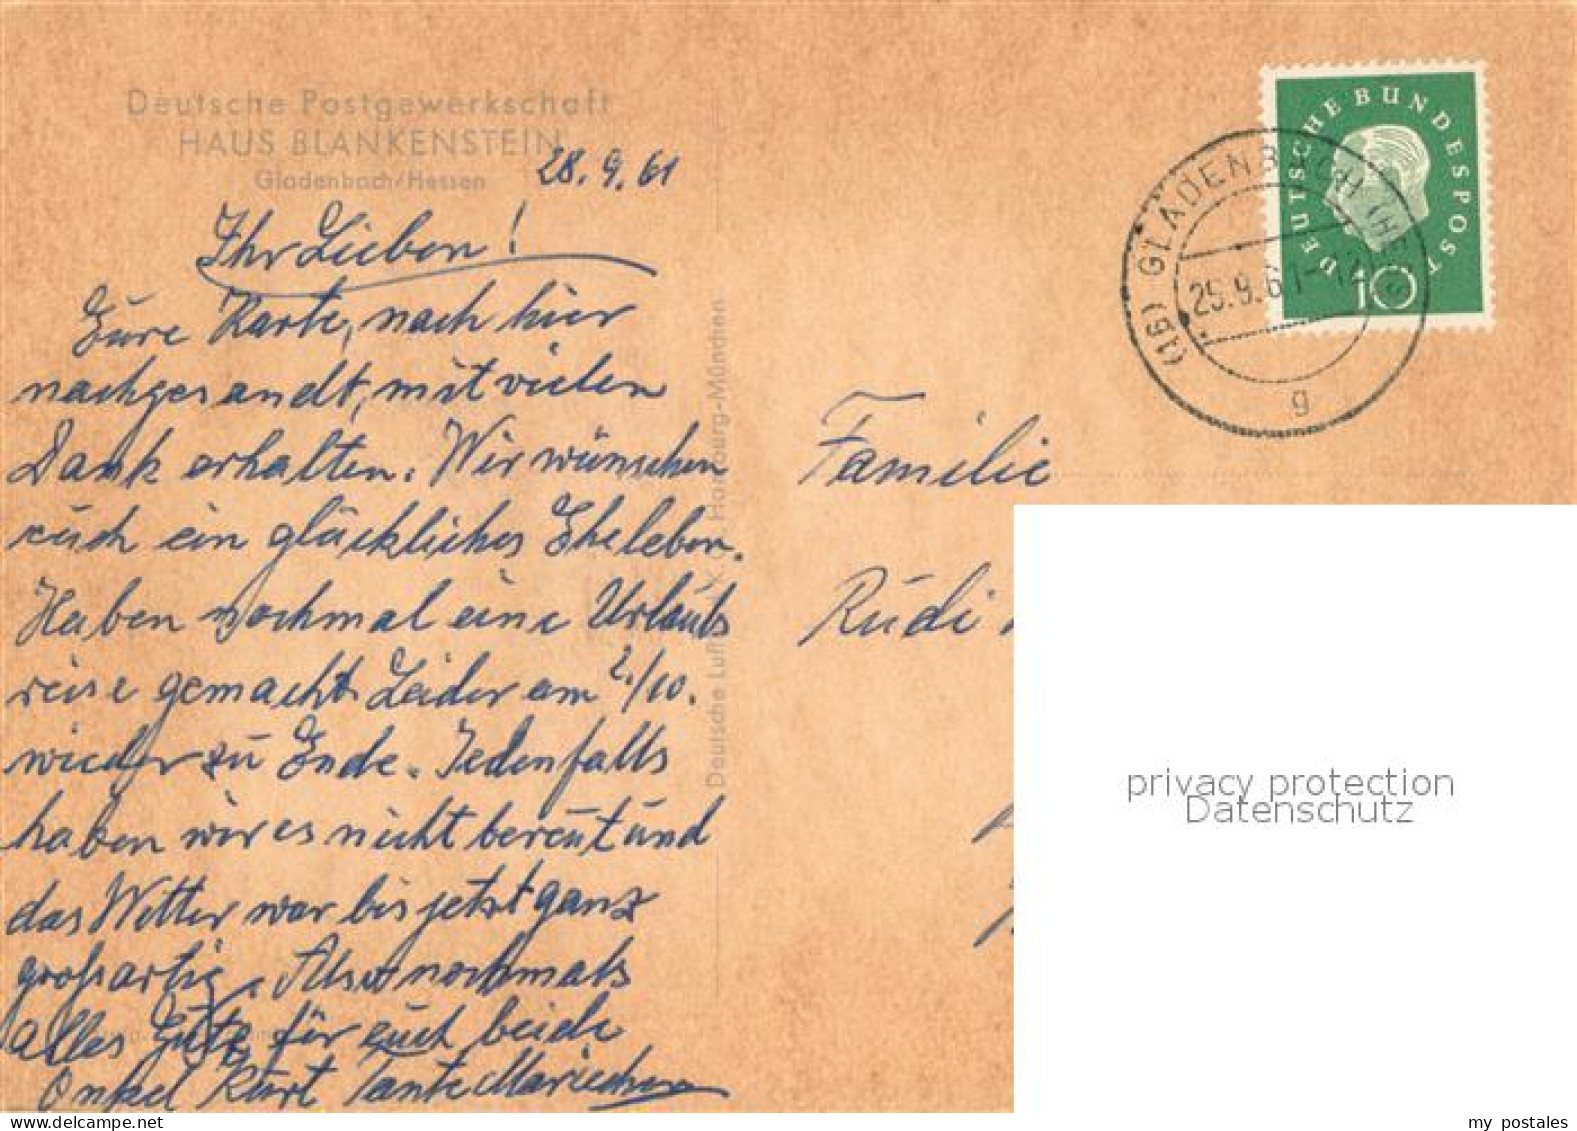 Deutsche Postgewerkschaft
HAUS BLANKENSTEIN
Gladenbach/Hessen
28.9.61
Ihr Lieben!
Eure Karte, nach hier
nachgesandt, mit vielen
Dank erhalten. Wir wünschen
euch ein glückliches Eheleben.
Haben nochmal eine Urlaubs
reise gemacht. Leider am 2./10.
wieder zu Ende. Jedenfalls
haben wir es nicht bereut und
das Wetter war bis jetzt ganz
großartig. Also nochmals
alles Gute für euch beide
Onkel Kurt Tante Mariechen
Deutsche Luft Hamburg-München
DEUTSCHE BUNDESPOST
10
(16) GLADENBACH (HESS
29.9.61-12
g
Familie
Rudi
privacy protection
Datenschutz
delcampe.net
my postales